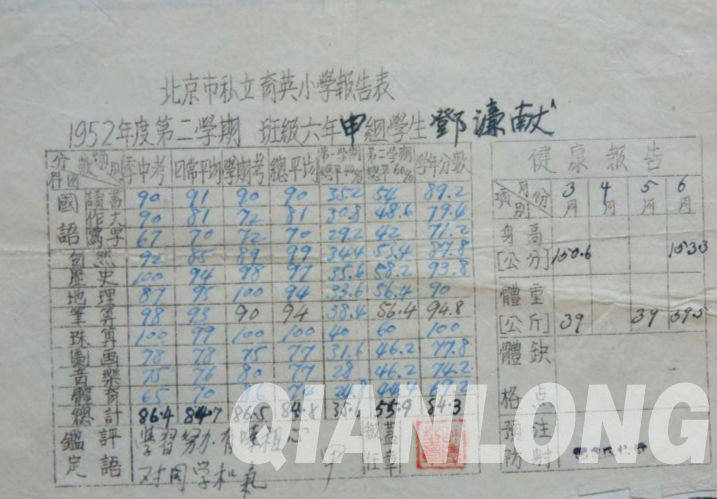 北京市私立育英小學報告表
1952年度第二學期 班級六年甲組學生鄧濂献
季中考 日常平均 學期考 總平均 第一學期總平40% 第二學期總平60% 學年分數
國語 讀書 90 91 90 90 35.2 54 89.2
作文 90 81 72 81 30.8 48.6 79.4
寫字 67 70 72 70 29.2 42 71.2
自然 92 85 89 89 34.4 53.4 87.8
歷史 100 94 98 97 35.6 58.2 93.8
地理 87 95 100 94 33.6 56.4 90
筆算 98 93 90 94 38.4 56.4 94.8
珠算 100 99 100 100 40 60 100
圖画 78 78 75 77 31.6 46.2 77.8
音樂 75 76 80 77 28 46.2 74.2
體育 65 70
總計 86.4 84.7 86.5 85.9 84.3
鑑定 評語 學習努力
對同學和氣
級任 蓋章
健康報告
項別 月份 3月 4月 5月 6月
身高[公分] 150.6 153.3
體重[公斤] 39 39 39.5
體格缺点
預防注射
QIANLONG